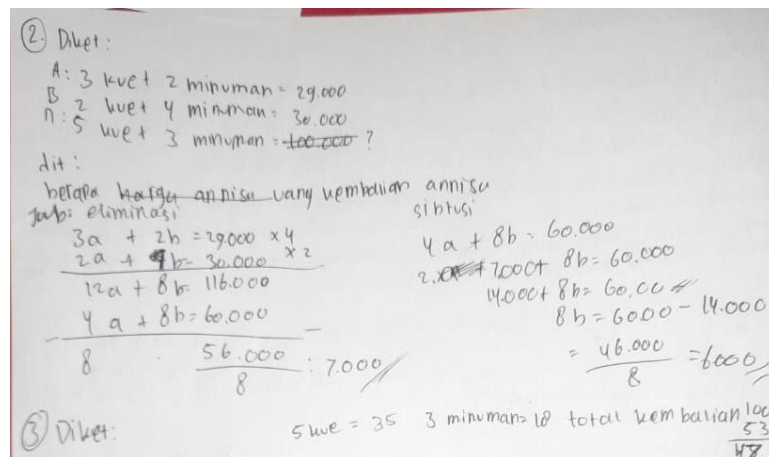 ② Diket:
A: 3 kue + 2 minuman = 29.000
B 2 kue + 4 minuman = 30.000
n: 5 kue + 3 minuman = 100.000 ?
dit:
berapa harga annisa uang kembalian annisa
Jwb: eliminasi
3a + 2b = 29.000 x 4
2a + 4b = 30.000 x 2
12a + 8b = 116.000
4a + 8b = 60.000 -
8 56.000 / 8 : 7.000
sibtusi
4a + 8b = 60.000
7.000 + 8b = 60.000
14.000 + 8b = 60.00
8b = 6000 - 14.000
= 46.000 / 8 = 6000
5 kue = 35 3 minuman = 18 total kembalian 100
53
48
③ Diket: